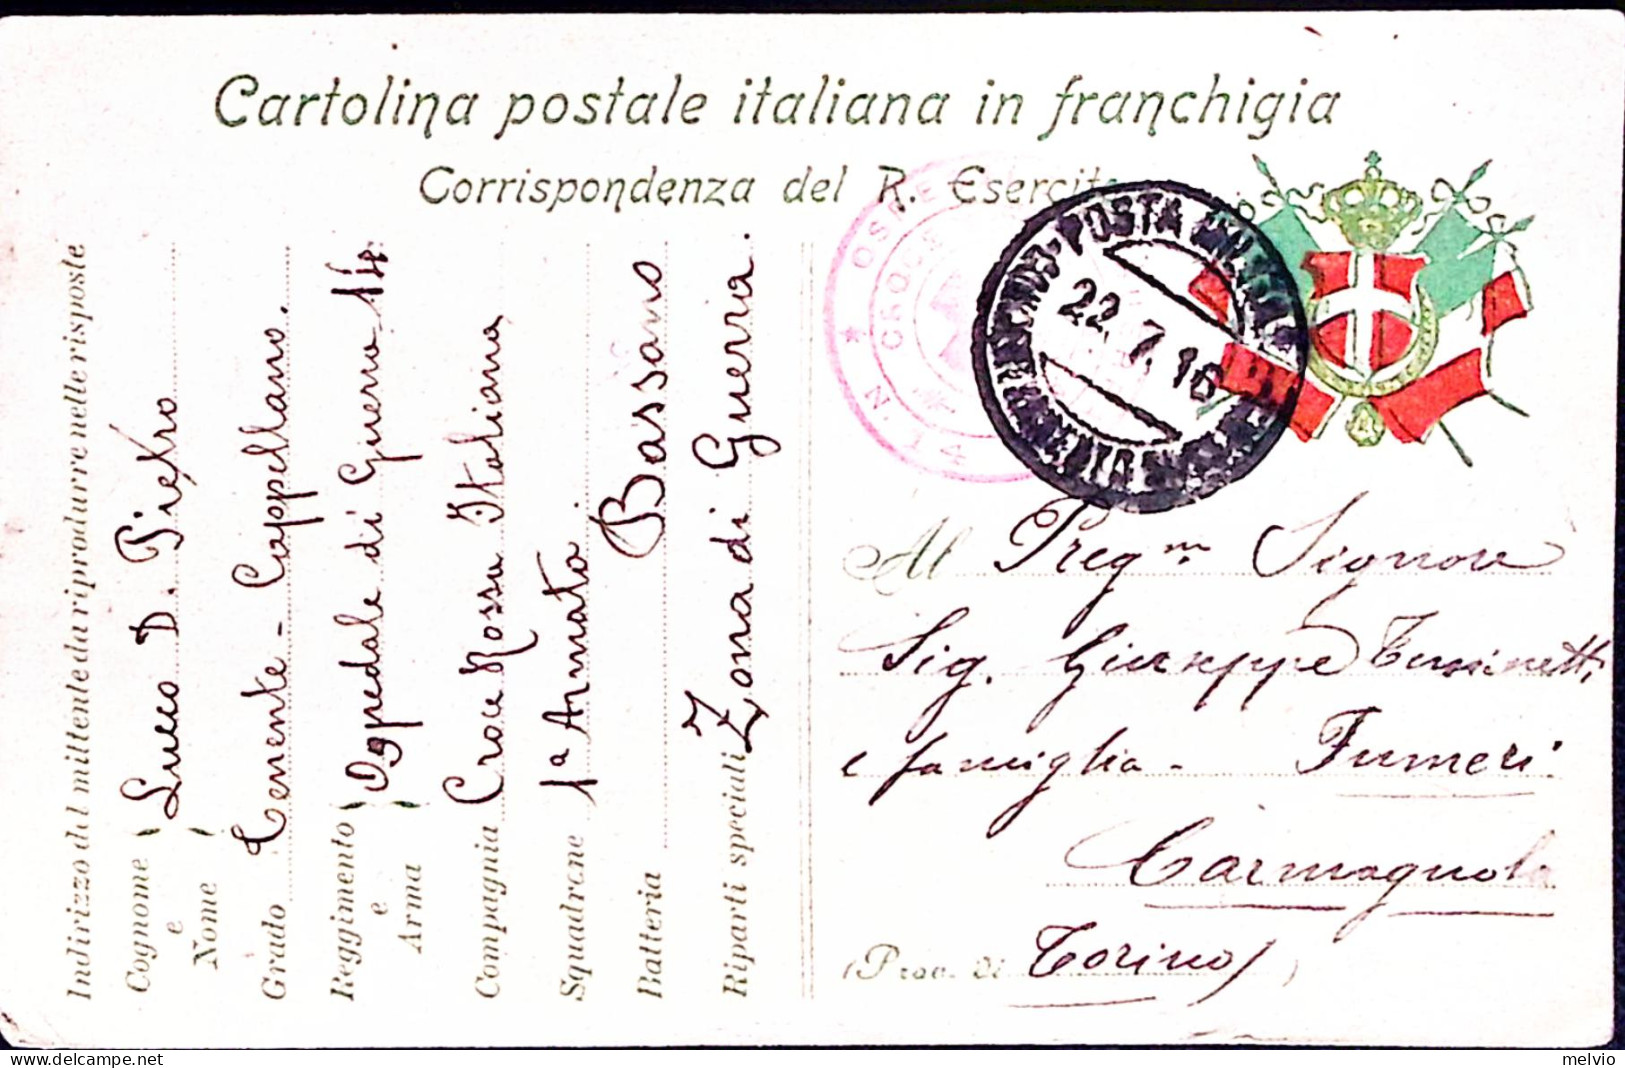 Cartolina postale italiana in franchigia
Corrispondenza del R. Esercito
Indirizzo del mittente da riprodurre nelle risposte
Cognome e Nome Lucco D. Pietro
Grado Tenente - Cappellano.
Reggimento e Arma Ospedale di Guerra 14
Compagnia Croce Rossa Italiana
Squadrone 1ª Armata
Batteria Bassano
Riparti speciali Zona di Guerra.
* OSPE
CROCE
N. 14
POSTA MILITARE
22.7.16
Al Preg.mo Signore
Sig. Giuseppe
e famiglia - Fumeri
Carmagnola
(Prov. di Torino)
melvio